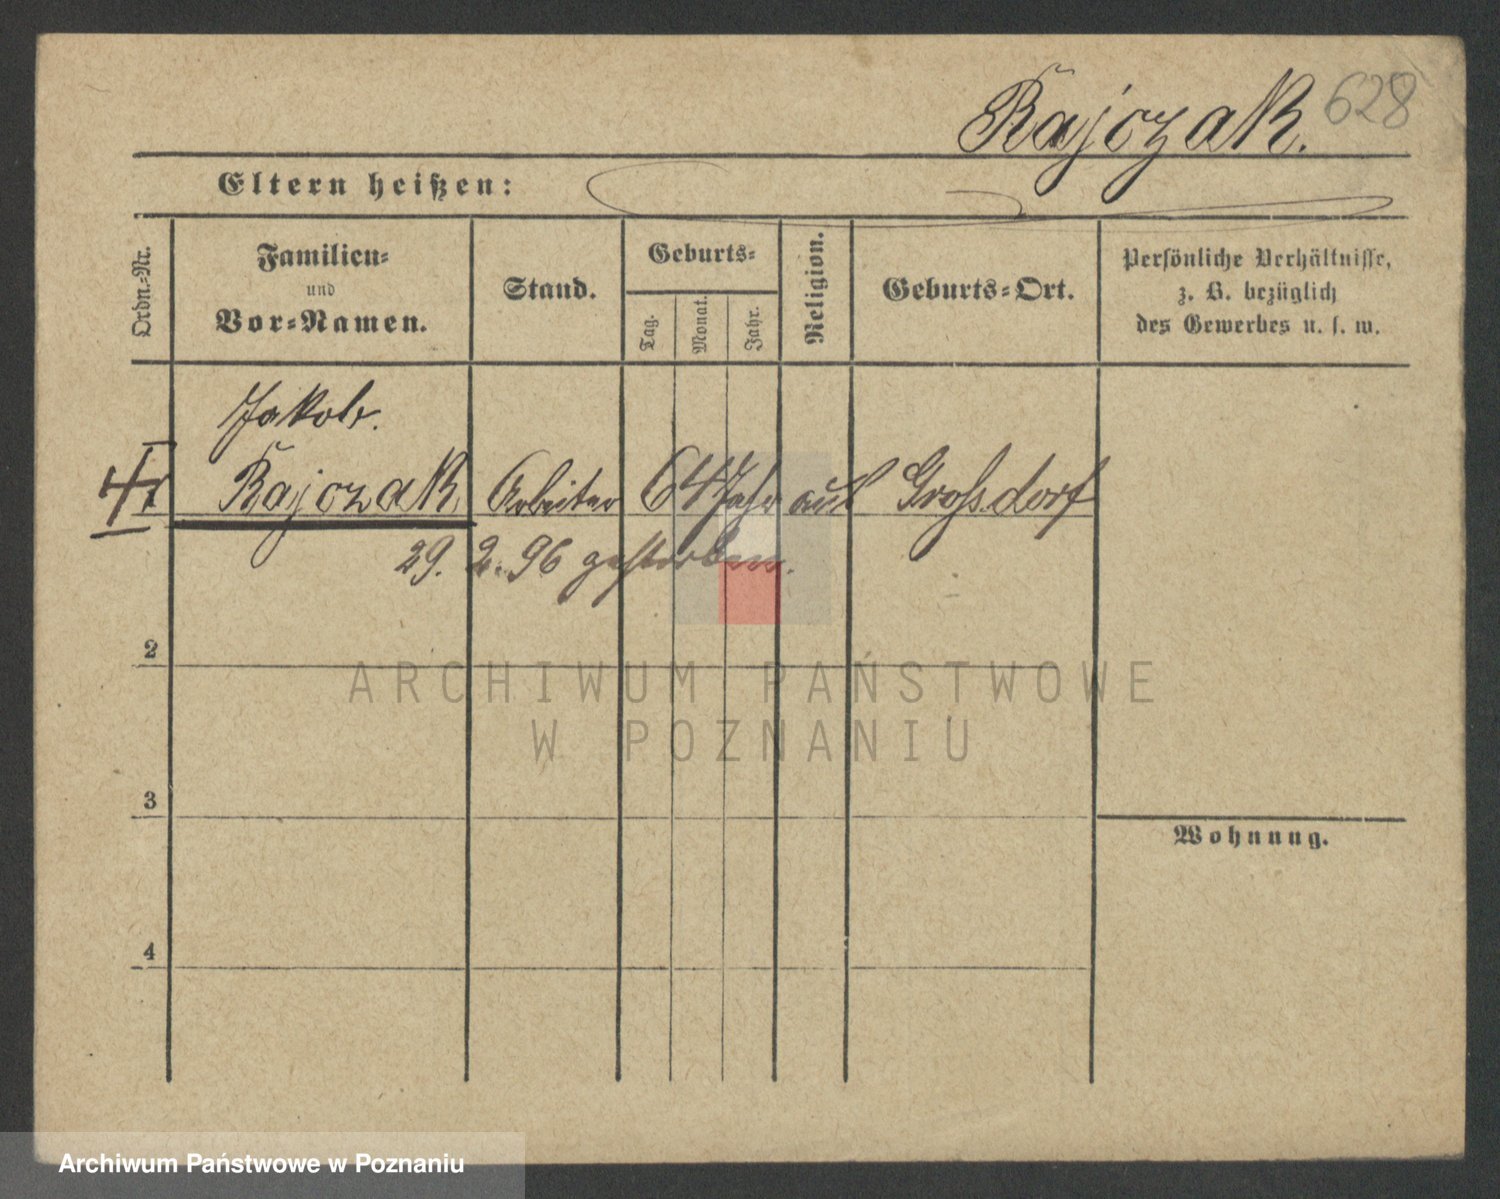 Rajczak. 628
Eltern heißen:
Ordn.-Nr.
Familien-
und
Vor-Namen.
Stand.
Geburts-
Tag.
Monat.
Jahr.
Religion.
Geburts-Ort.
Persönliche Verhältnisse,
z. B. bezüglich
des Gewerbes u. s. w.
Jakob.
Rajczak Arbeiter 64 Jahr aus Grossdorf
29. 2. 96 gestorben.
2
ARCHIWUM PAŃSTWOWE
W POZNANIU
3
Wohnung.
4
Archiwum Państwowe w Poznaniu